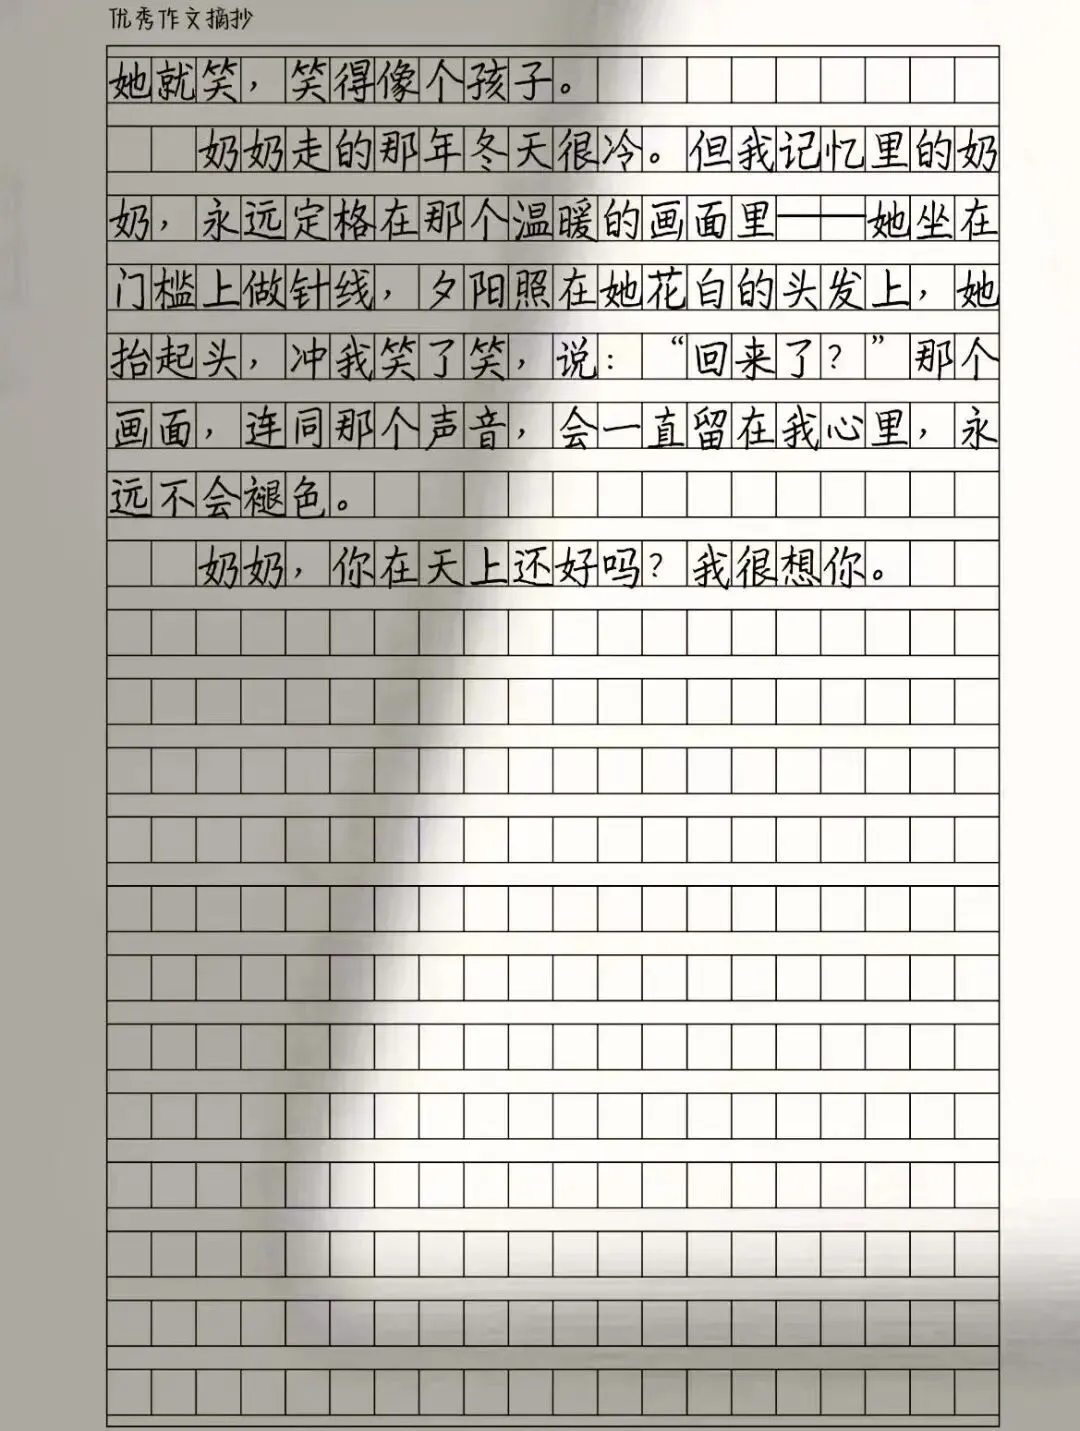 优秀作文摘抄
她就笑，笑得像个孩子。
奶奶走的那年冬天很冷。但我记忆里的奶
奶，永远定格在那个温暖的画面里——她坐在
门槛上做针线，夕阳照在她花白的头发上，她
抬起头，冲我笑了笑，说：“回来了？”那个
画面，连同那个声音，会一直留在我心里，永
远不会褪色。
奶奶，你在天上还好吗？我很想你。